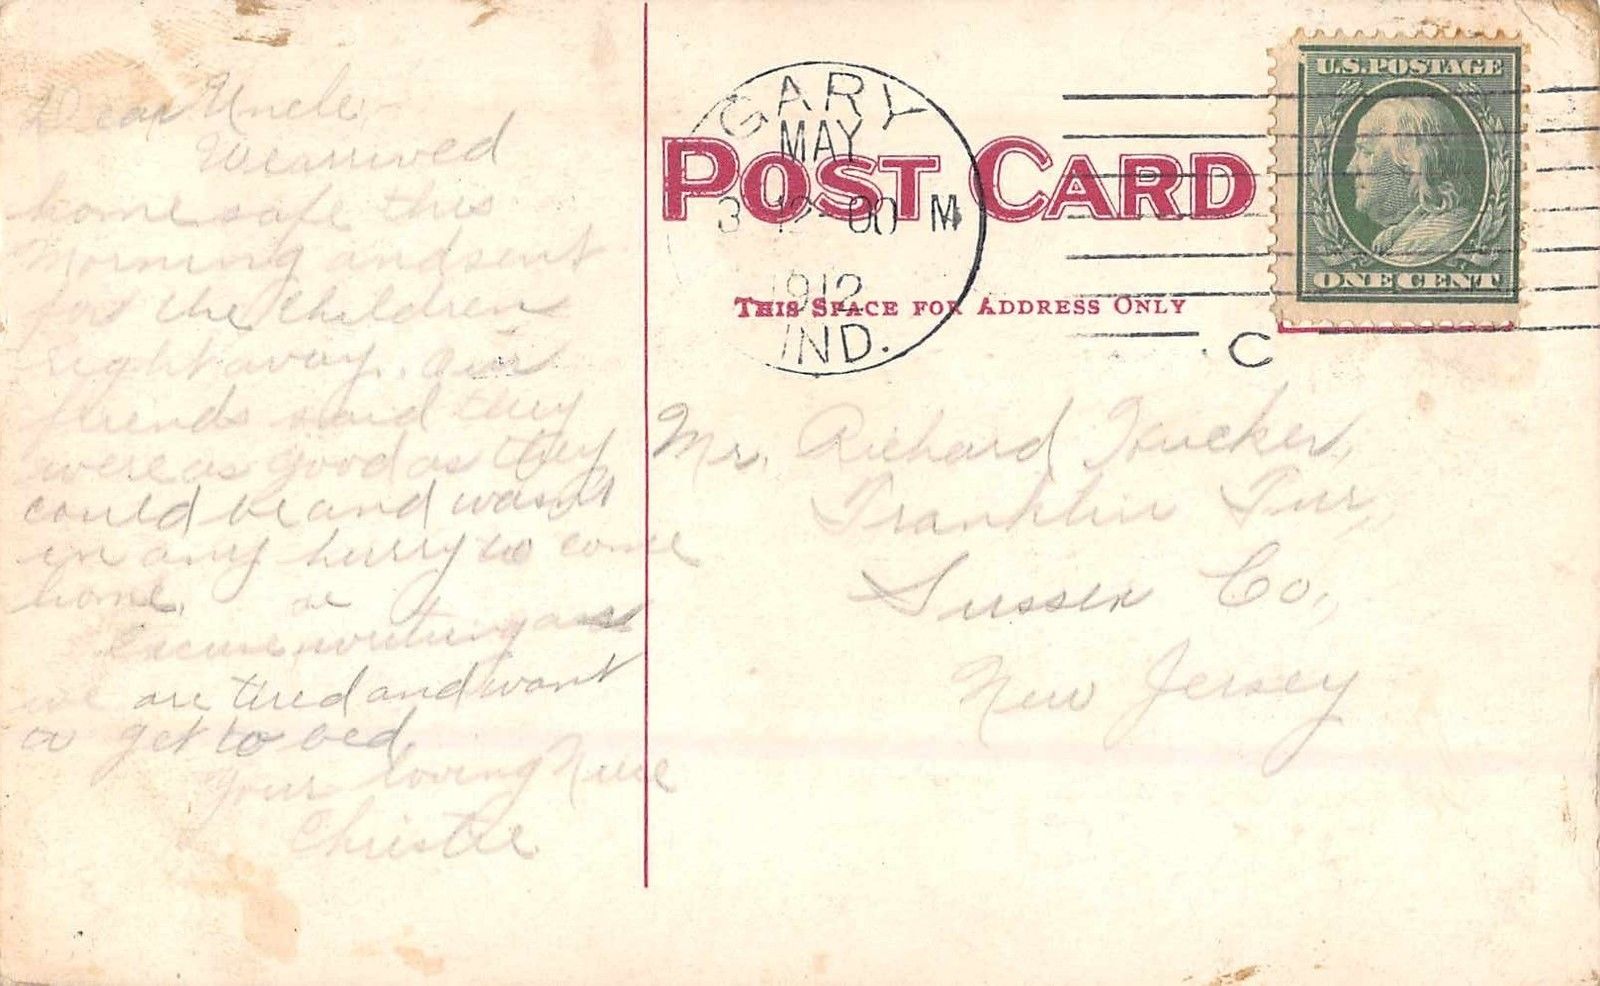 Dear Uncle,-
We arrived
home safe this
Morning and sent
for the children
right away. Our
friends said they
were as good as they
could be and wasn't
in any hurry to come
home.
Excuse writing as
we are tired and want
to get to bed,
Your loving Niece
Christie
GARY
MAY
3 12-00 M
1912
IND.
C
POST CARD
THIS SPACE FOR ADDRESS ONLY
U.S. POSTAGE
ONE CENT
Mr. Richard
Franklin Fur.,
Sussex Co.,
New Jersey